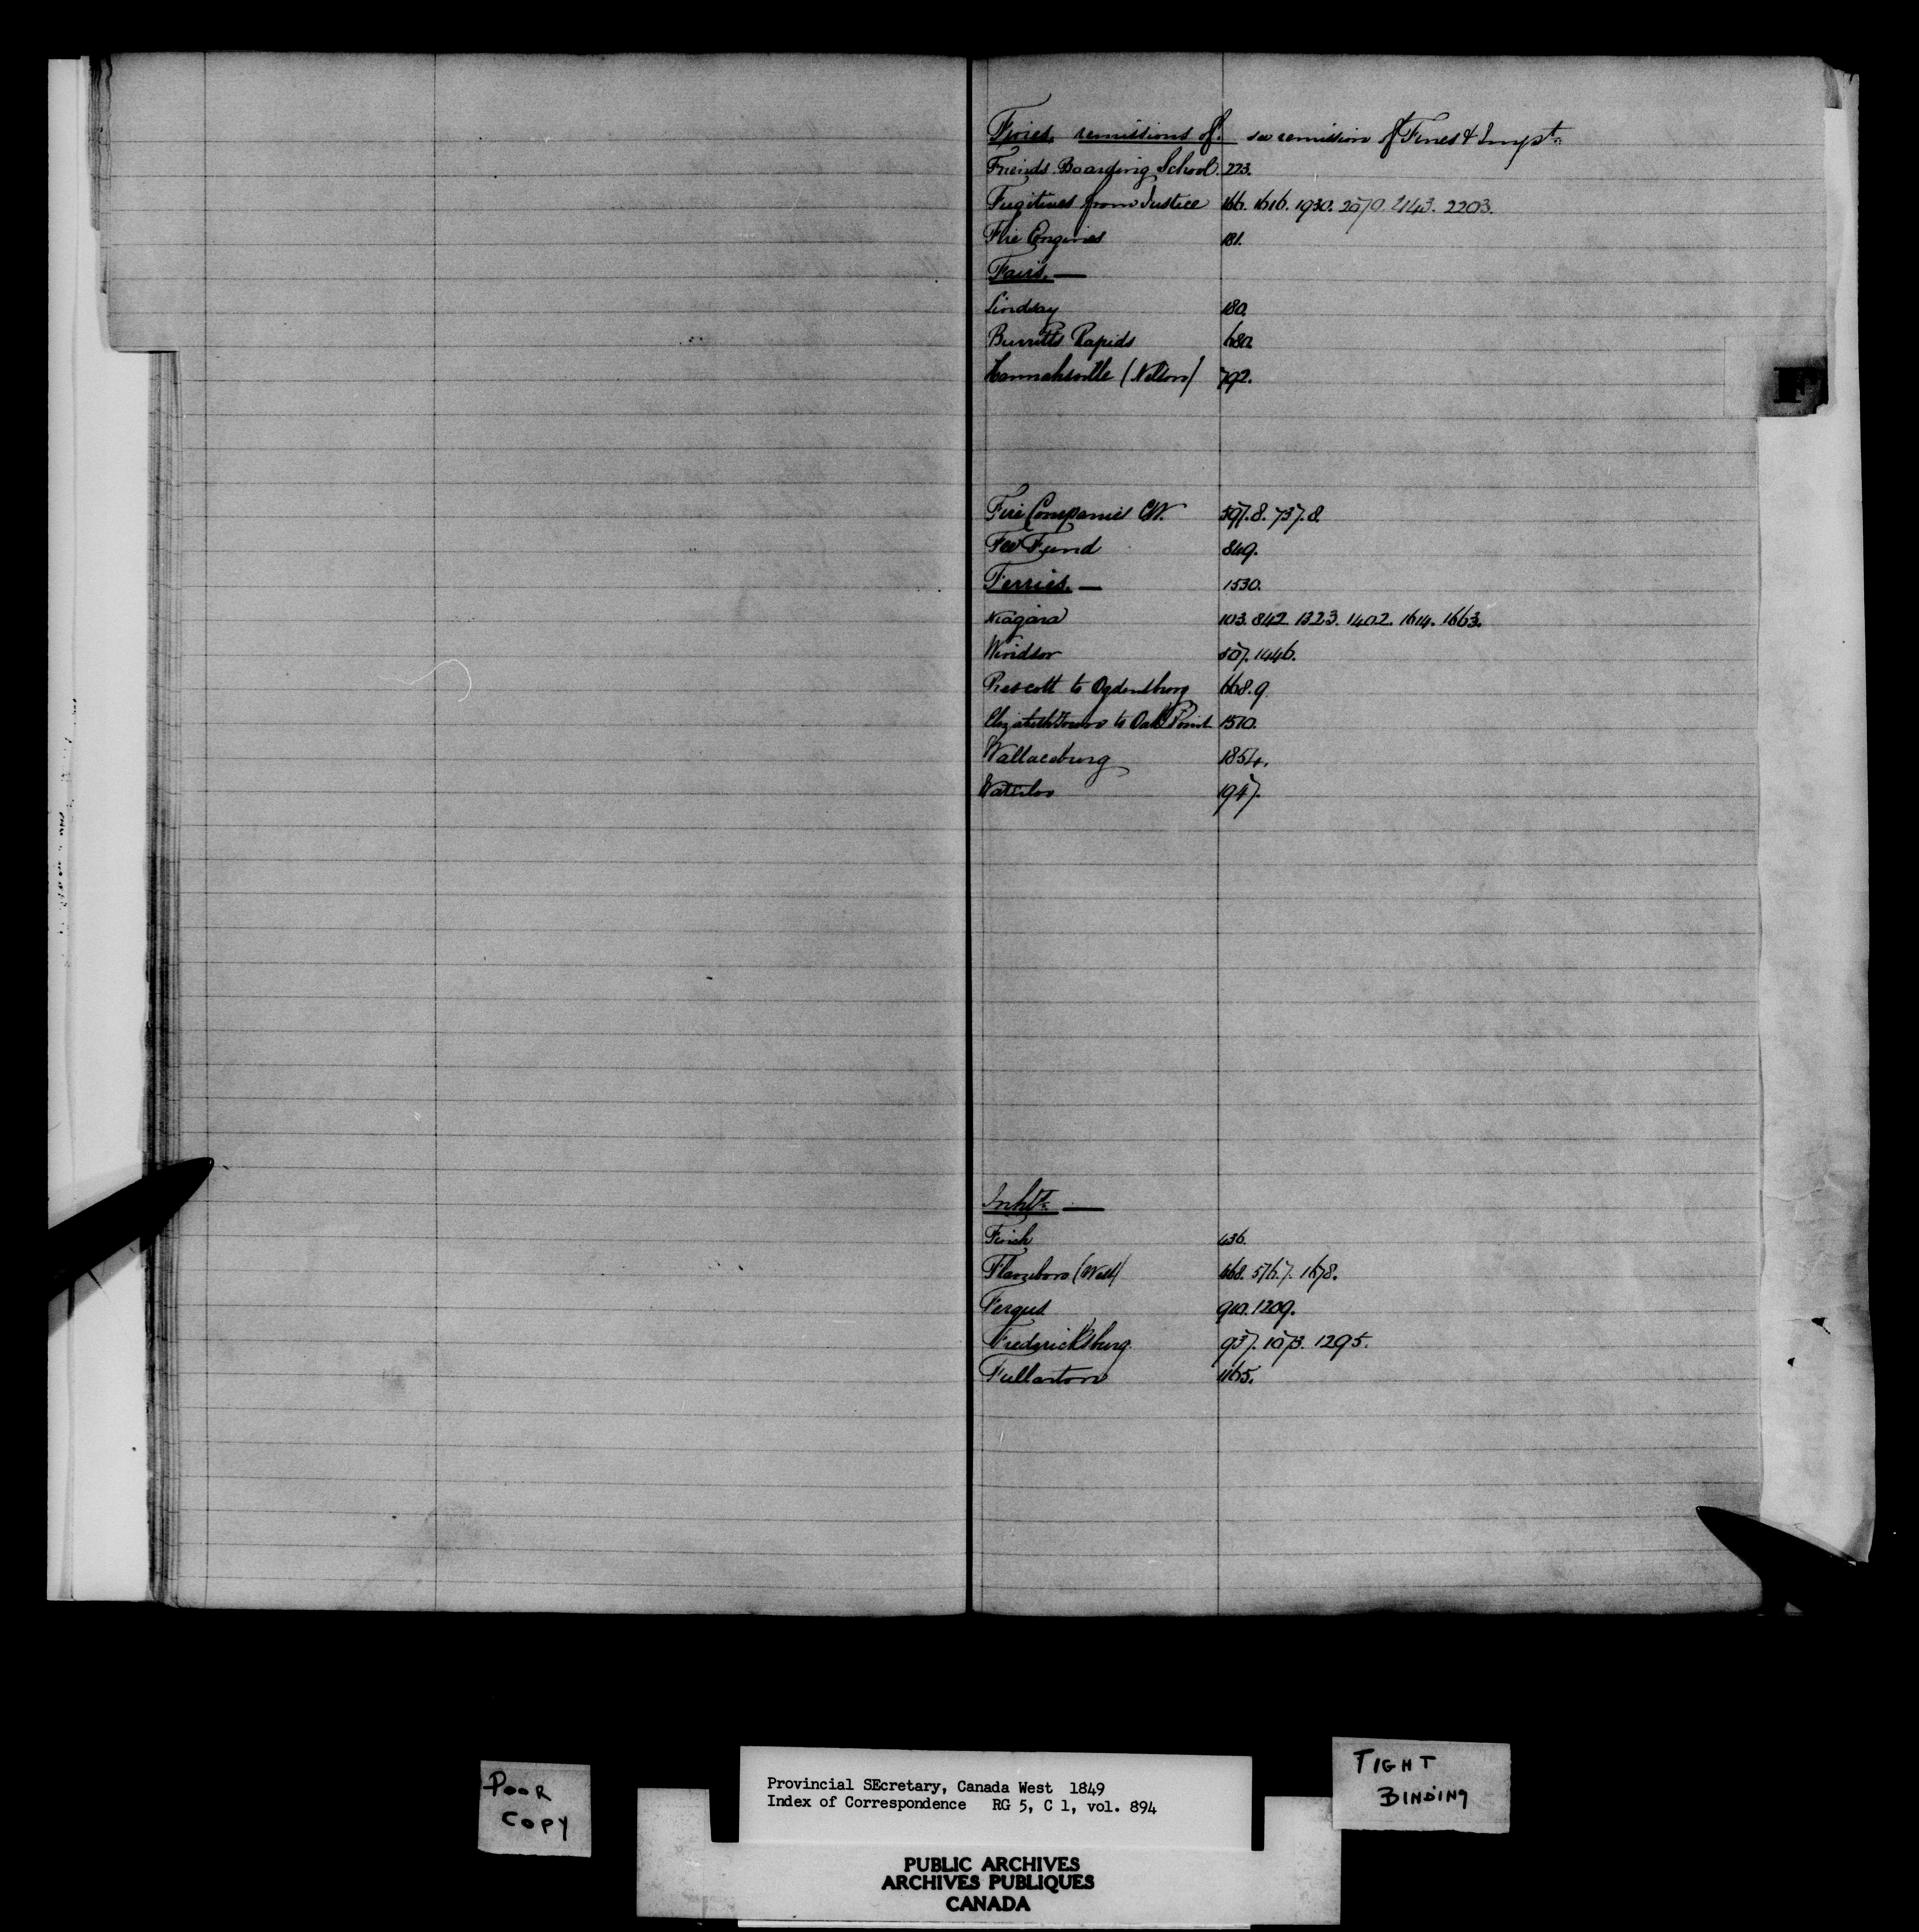 Fines, remissions of. see remission of Fines & Impt.
Friends Boarding School. 223.
Fugitives from Justice 166. 1616. 1930. 2070. 2143. 2203.
Fire Engines 181.
Fairs. —
Lindsay 180.
Burritts Rapids 680.
Hannahsville (Nelson) 792.
F
Fire Companies CW. 597.8. 737.8.
Fee Fund 849.
Ferries. — 1530.
Niagara 103. 842. 1323. 1402. 1614. 1663.
Windsor 507. 1446.
Prescott to Ogdensburg 668.9
Elizabethtown to Oak Point 1510.
Wallaceburg 1854.
Waterloo 1947.
Inhts. —
Finch 436.
Flamboro (West) 668. 576.7. 1678.
Fergus 910. 1209.
Fredericksburg. 937. 1073. 1295.
Fullarton 1165.
POOR
COPY
Provincial SEcretary, Canada West 1849
Index of Correspondence RG 5, C 1, vol. 894
TIGHT
BINDING
PUBLIC ARCHIVES
ARCHIVES PUBLIQUES
CANADA